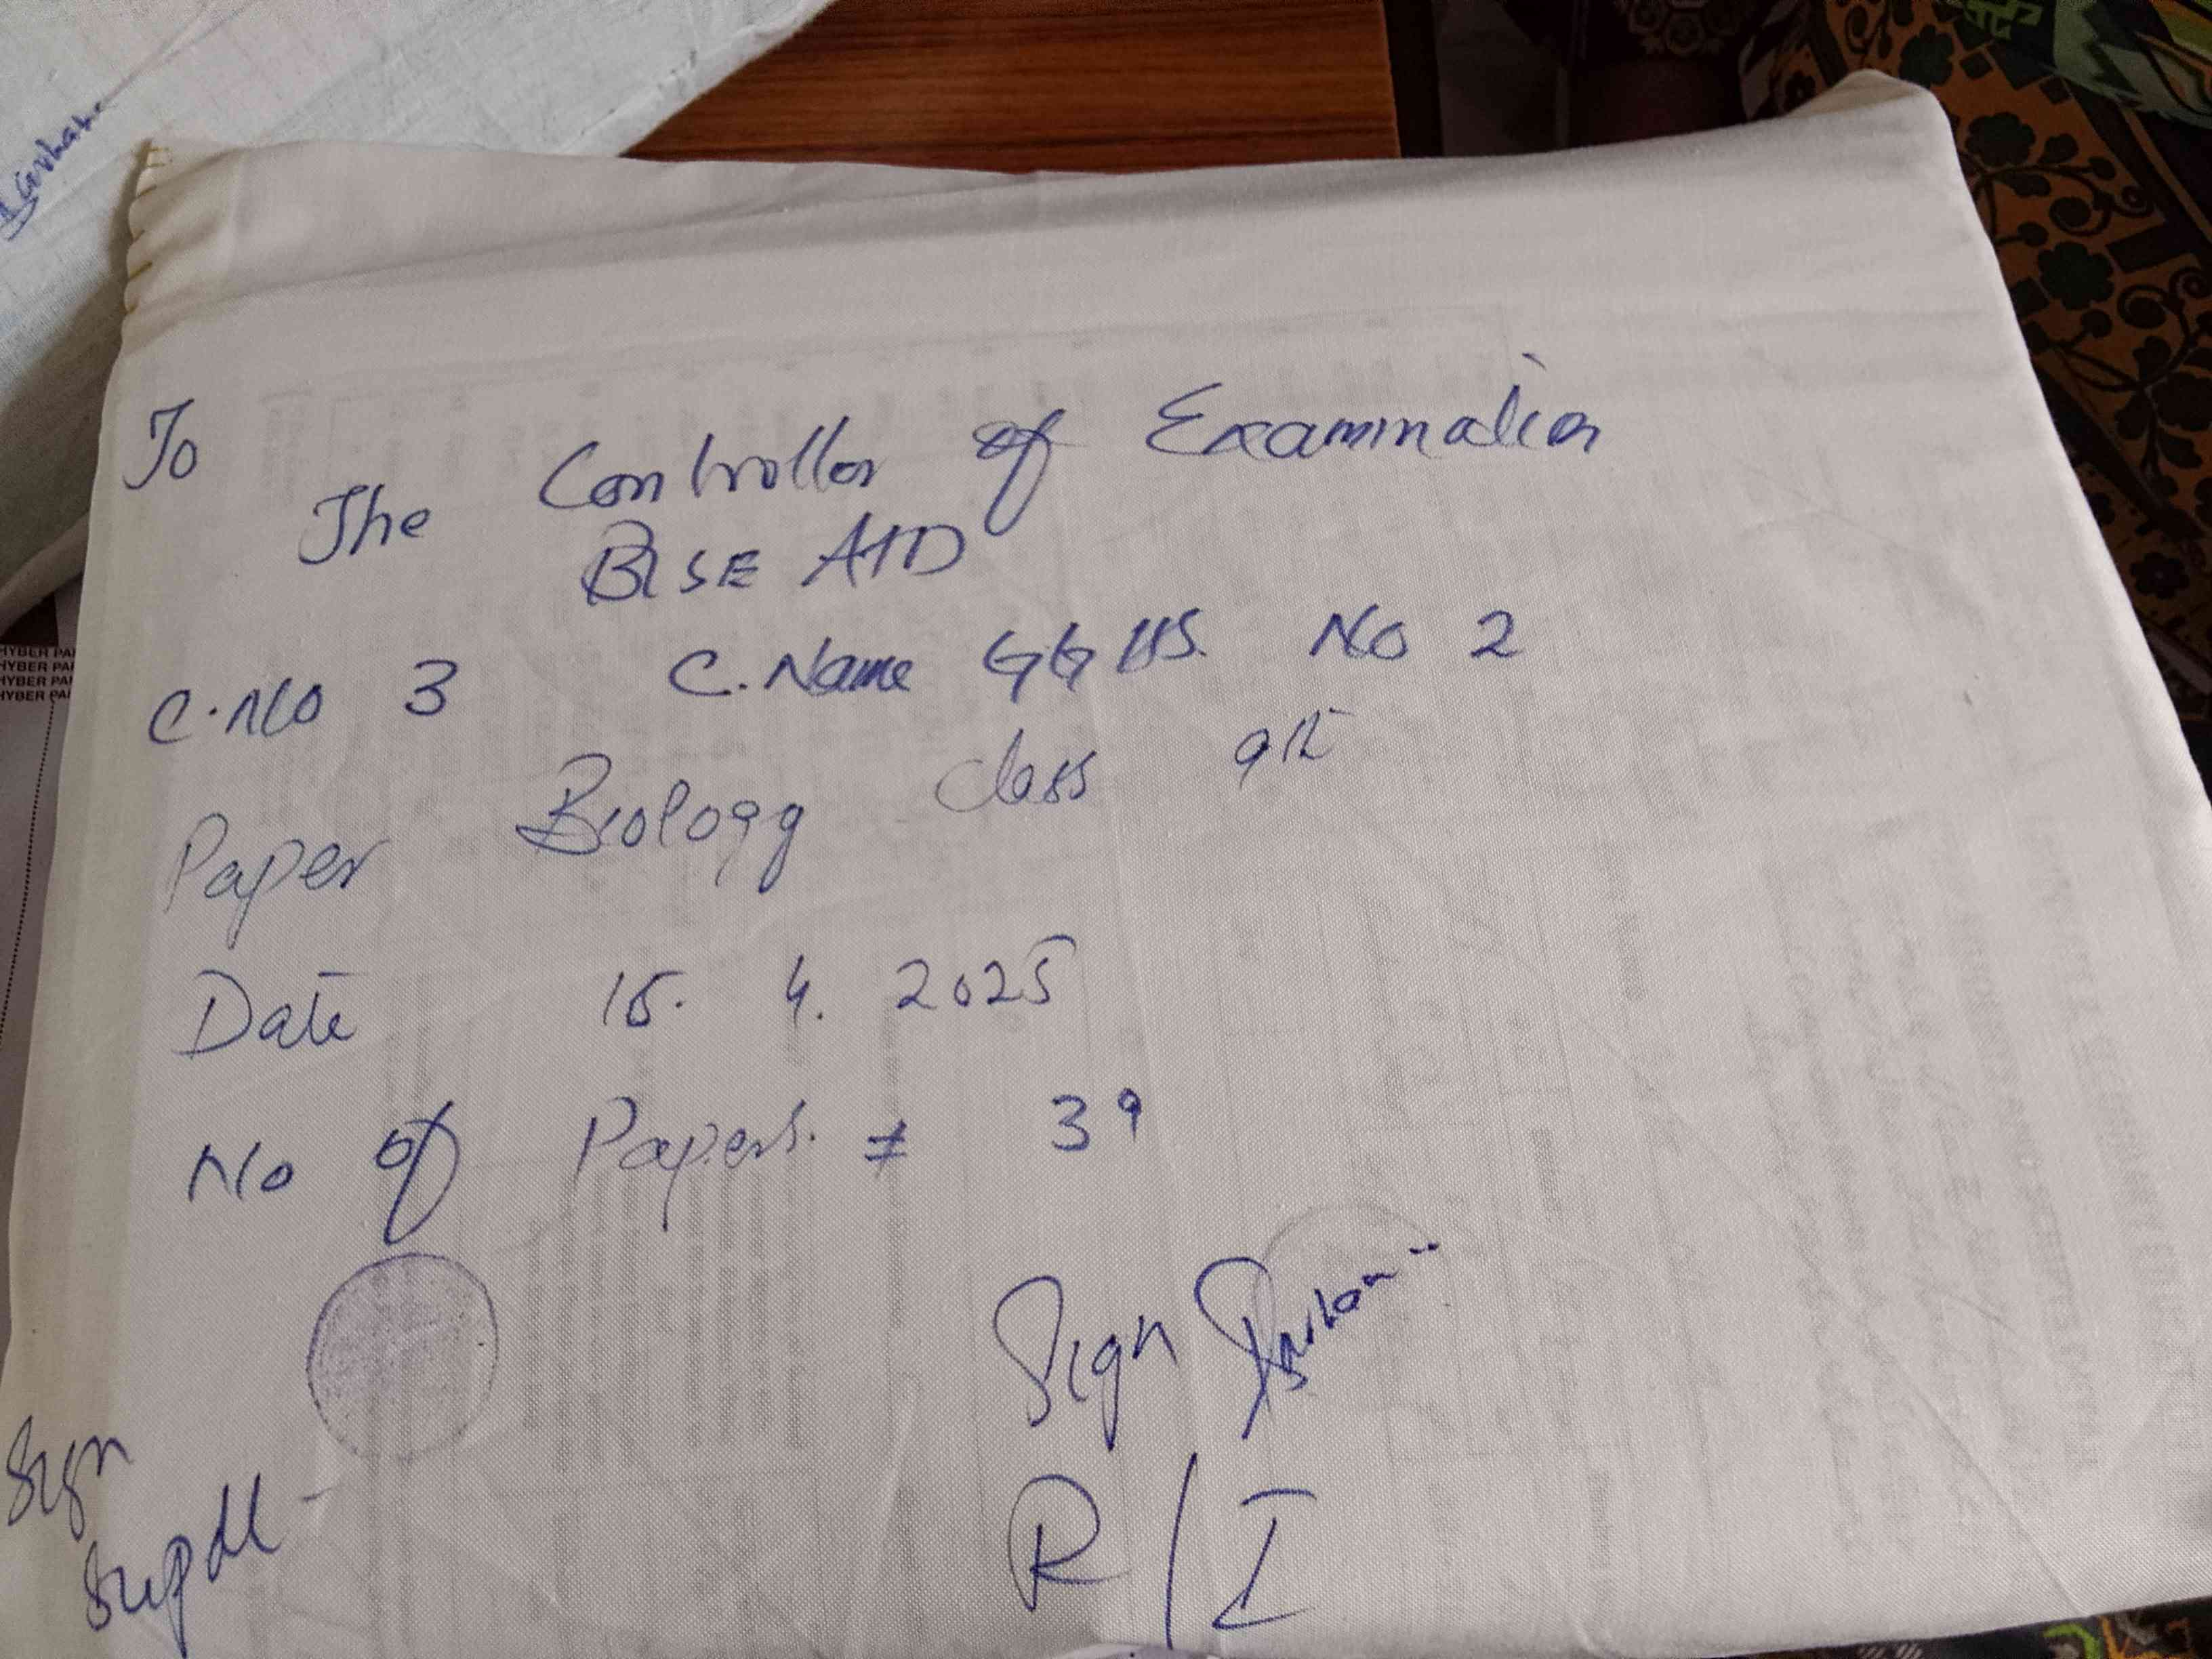 To
The Controller of Examination
BISE ATD
C.No 3 C.Name GGHS. No 2
Paper Biology Class 9th
Date 15. 4. 2025
No of Papers. = 39
Sign
Sign
Supdt
R/I
HYBER PA
HYBER PA
HYBER PA
HYBER PA